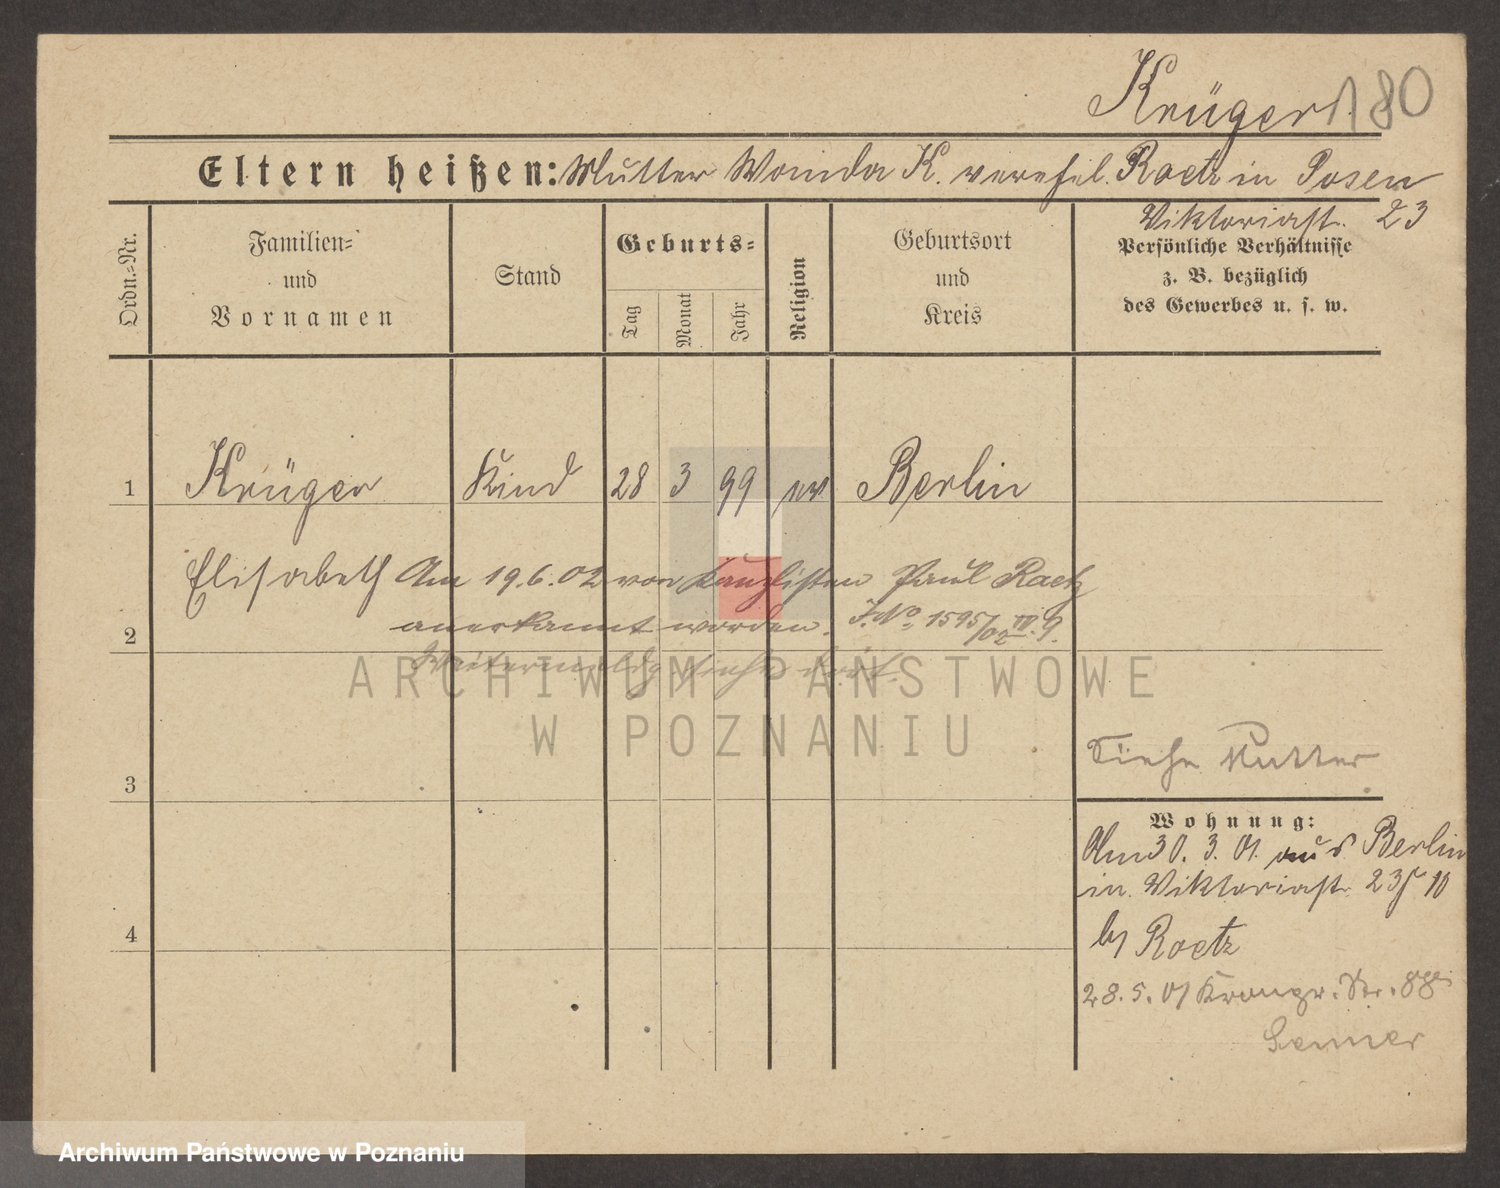 Krüger 180
Eltern heißen: Mutter Wanda K. verehel. Raetz in Posen
Viktoriastr. 23
Ordn.=Nr.
Familien=
und
Vornamen
Stand
Geburts=
Tag
Monat
Jahr
Religion
Geburtsort
und
Kreis
Persönliche Verhältnisse
z. B. bezüglich
des Gewerbes u. s. w.
1 Krüger Kind 28 3 99 ev Berlin
Elisabeth Am 19.6.02 von Kanzlisten Paul Raetz
anerkannt worden. J.No. 1595/02
2
siehe dort.
ARCHIWUM PAŃSTWOWE
W POZNANIU
Siehe Mutter
3
Wohnung:
Am 30. 3. 01. aus Berlin
in Viktoriastr. 23
4
by Raetz
28. 5. 01 Kronpr. Str.
Archiwum Państwowe w Poznaniu